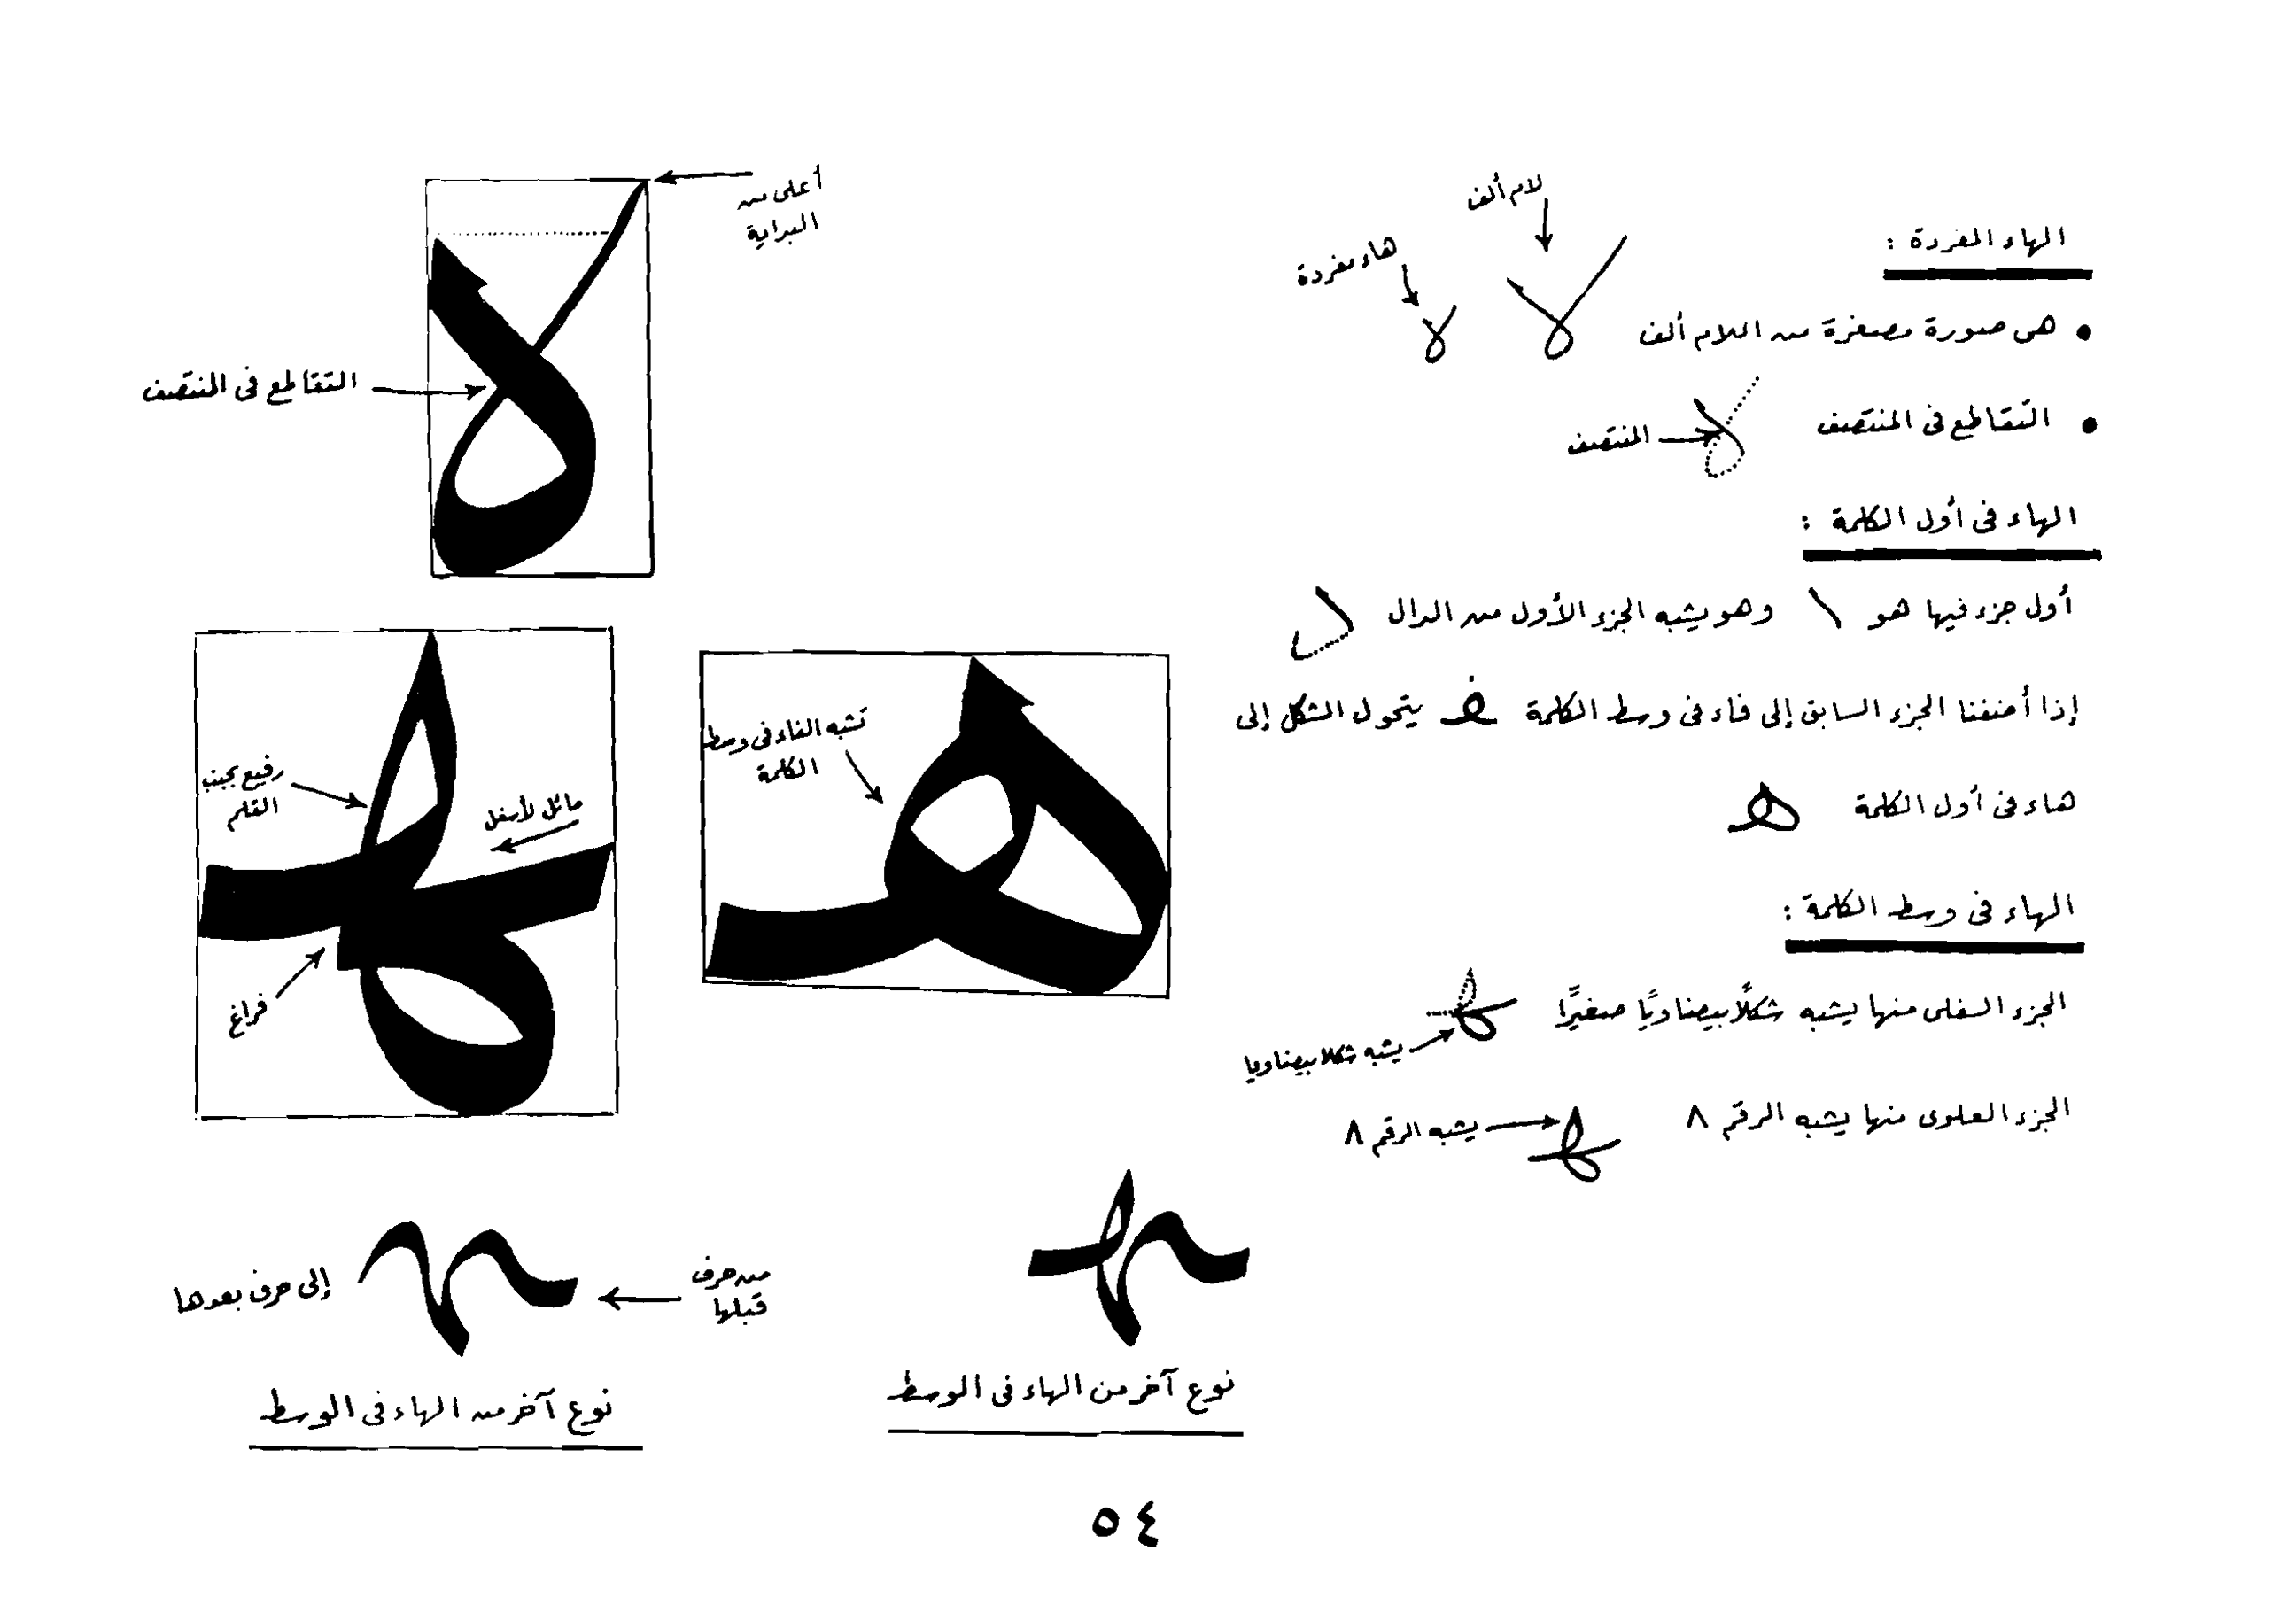 الهاء المفردة :
• هى صورة مصغرة من اللام ألف
لام ألف
هاء مفردة
• التقاطع فى المنتصف
المنتصف
الهاء فى أول الكلمة :
أول جزء فيها هو \ وهو يشبه الجزء الأول من الدال
إذا أضفنا الجزء السابق إلى فاء فى وسط الكلمة ـفـ يتحول الشكل إلى
هاء فى أول الكلمة هـ
الهاء فى وسط الكلمة :
الجزء السفلى منها يشبه شكلًا بيضاويًا صغيرًا
يشبه شكلا بيضاويا
الجزء العلوى منها يشبه الرقم ٨
يشبه الرقم ٨
أعلى من
البداية
التقاطع فى المنتصف
تشبه الفاء فى وسط
الكلمة
رفيع بجنب
القلم
مائل لأسفل
فراغ
نوع آخر من الهاء فى الوسط
من حرف
قبلها
إلى حرف بعدها
نوع آخر من الهاء فى الوسط
٥٤